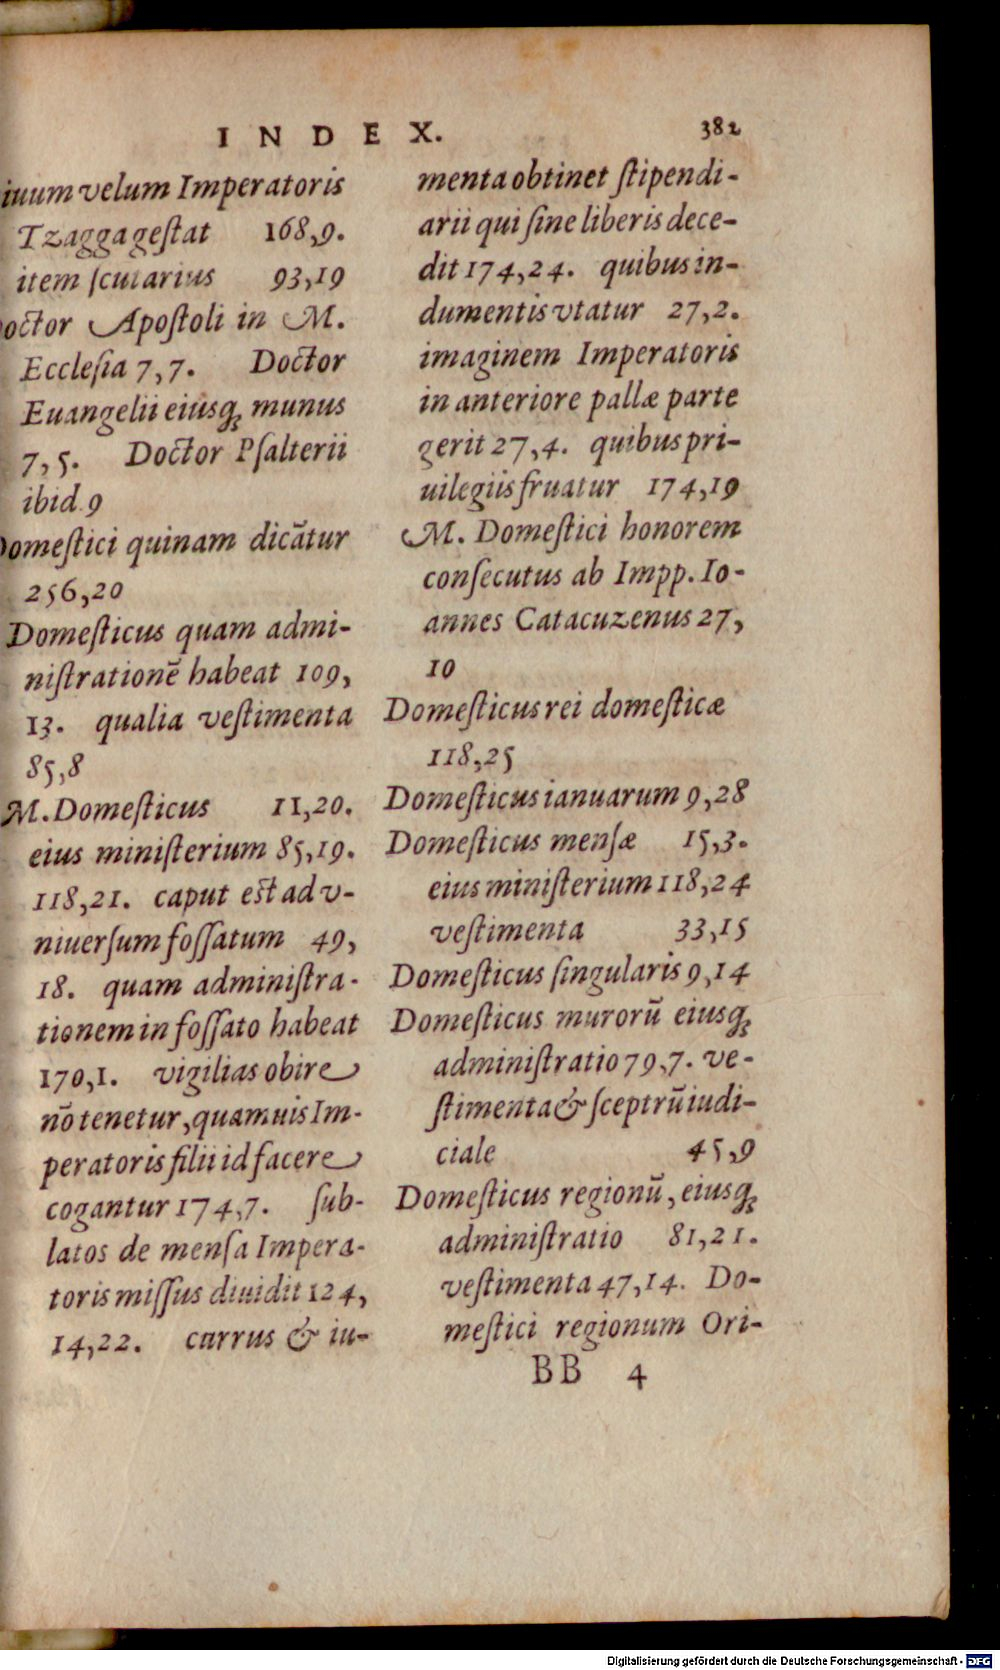 INDEX. 382
iuum velum Imperatoris
Tzaggagestat 168,9.
item scutarius 93,19
octor Apostoli in M.
Ecclesia 7,7. Doctor
Euangelii eiusq; munus
7,5. Doctor Psalterii
ibid. 9
Domestici quinam dicãtur
256,20
Domesticus quam admi-
nistrationẽ habeat 109,
13. qualia vestimenta
85,8
M. Domesticus 11,20.
eius ministerium 85,19.
118,21. caput est ad v-
niuersum fossatum 49,
18. quam administra-
tionem in fossato habeat
170,1. vigilias obire
nõ tenetur, quamuis Im-
peratoris filii id facere
cogantur 174,7. sub-
latos de mensa Impera-
toris missus diuidit 124,
14,22. currus & iu-
menta obtinet stipendi-
arii qui sine liberis dece-
dit 174,24. quibus in-
dumentis vtatur 27,2.
imaginem Imperatoris
in anteriore pallæ parte
gerit 27,4. quibus pri-
uilegiis fruatur 174,19
M. Domestici honorem
consecutus ab Impp. Io-
annes Catacuzenus 27,
10
Domesticus rei domesticæ
118,25
Domesticus ianuarum 9,28
Domesticus mensæ 15,3.
eius ministerium 118,24
vestimenta 33,15
Domesticus singularis 9,14
Domesticus murorũ eiusq;
administratio 79,7. ve-
stimenta & sceptrũ iudi-
ciale 45,9
Domesticus regionũ, eiusq;
administratio 81,21.
vestimenta 47,14. Do-
mestici regionum Ori-
BB 4
Digitalisierung gefördert durch die Deutsche Forschungsgemeinschaft - DFG